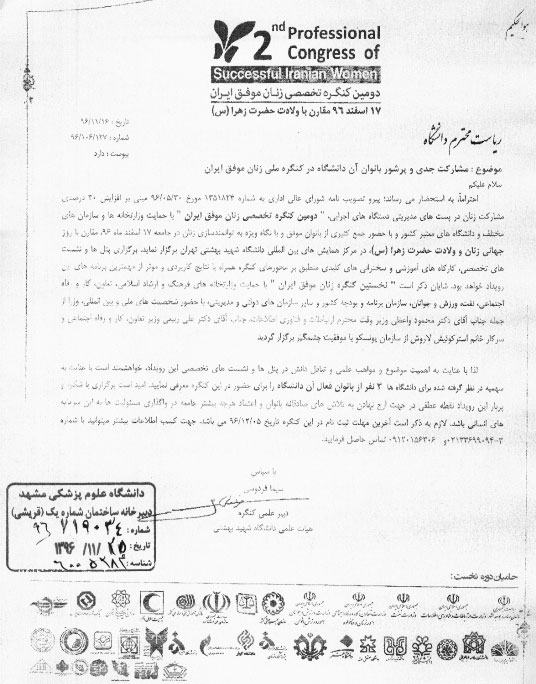 هوالحکیم
2nd Professional
Congress of
Successful Iranian Women
دومین کنگره تخصصی زنان موفق ایران
۱۷ اسفند ۹۶ مقارن با ولادت حضرت زهرا (س)
تاریخ : ۹۶/۱۱/۱۶
شماره : ۹۶/۱۰۶/۱۲۷
پیوست : دارد
ریاست محترم دانشگاه
موضوع : مشارکت جدی و پرشور بانوان آن دانشگاه در کنگره ملی زنان موفق ایران
سلام علیکم
احتراماً، به استحضار می رساند؛ پیرو تصویب نامه شورای عالی اداری به شماره ۱۳۵۱۸۲۴ مورخ ۹۶/۰۵/۳۰ مبنی بر افزایش ۳۰ درصدی
مشارکت زنان در پست های مدیریتی دستگاه های اجرایی، " دومین کنگره تخصصی زنان موفق ایران " با حمایت وزارتخانه ها و سازمان های
مختلف و دانشگاه های معتبر کشور و با حضور جمع کثیری از بانوان موفق و با نگاه ویژه به توانمندسازی زنان در جامعه ۱۷ اسفند ماه ۹۶، مقارن با روز
جهانی زنان و ولادت حضرت زهرا (س)، در مرکز همایش های بین المللی دانشگاه شهید بهشتی تهران برگزار نماید. برگزاری پنل ها و نشست
های تخصصی، کارگاه های آموزشی و سخنرانی های کلیدی منطبق بر محورهای کنگره همراه با نتایج کاربردی و موثر از مهمترین برنامه های این
رویداد خواهد بود. شایان ذکر است " نخستین کنگره زنان موفق ایران " با حمایت وزارتخانه های فرهنگ و ارشاد اسلامی، تعاون، کار و رفاه
اجتماعی، نفت، ورزش و جوانان، سازمان برنامه و بودجه کشور و سایر سازمان های دولتی و مدیریتی، با حضور شخصیت های ملی و بین المللی، وزرا از
جمله جناب آقای دکتر محمود واعظی وزیر وقت محترم ارتباطات و فناوری اطلاعات، جناب آقای دکتر علی ربیعی وزیر تعاون، کار و رفاه اجتماعی و
سرکار خانم استرکوئیش لاروش از سازمان یونسکو با موفقیت چشمگیر برگزار گردید
لذا با عنایت به اهمیت موضوع و مواهب علمی و تبادل دانش در پنل ها و نشست های تخصصی این رویداد، خواهشمند است با عنایت به
سهمیه در نظر گرفته شده برای دانشگاه ها ۳ نفر از بانوان فعال آن دانشگاه را برای حضور در این کنگره معرفی نمایید. امید است برگزاری با شکوه و
پربار این رویداد نقطه عطفی در جهت ارج نهادن به تلاش های صادقانه بانوان و اعتماد هرچه بیشتر جامعه در واگذاری مسئولیت ها به این سرمایه
های انسانی باشد. لازم به ذکر است آخرین مهلت ثبت نام در این کنگره تاریخ ۹۶/۱۲/۰۵ می باشد. جهت کسب اطلاعات بیشتر میتوانید با شماره
۰۲۱۳۳۶۹۹۰۹۴-۳ و ۰۹۱۲۰۱۵۶۳۰۶ تماس حاصل فرمایید.
با سپاس
سیما فردوسی
دبیر علمی کنگره
هیات علمی دانشگاه شهید بهشتی
دانشگاه علوم پزشکی مشهد
دبیرخانه ساختمان شماره یک (قریشی)
شماره : ۹۶ ۷۱۹۰۳۴
تاریخ : ۱۳۹۶ /۱۱/ ۲۵
شناسه : ۶۰۰۵۶۸۳
حامیان دوره نخست :